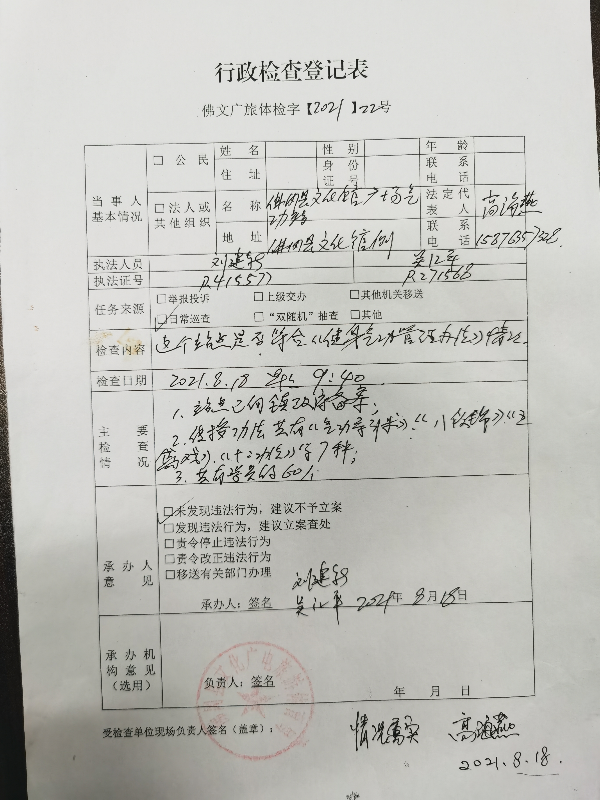 行政检查登记表
佛文广旅体检字【2021】22号
当事人基本情况
□公民
姓名
性别
年龄
住址
身份证号
联系电话
□法人或其他组织
名称
佛冈县文化馆广场气功站
法定代表人
高海燕
地址
佛冈县文化馆侧
联系电话
执法人员
刘建新
吴江平
执法证号
R415577
R271568
任务来源
□举报投诉 □上级交办 □其他机关移送
☑日常巡查 □“双随机”抽查 □其他
检查内容
这个站点是否符合《健身气功管理办法》情况
检查日期
2021.8.18 9:40
主要检查情况
1、站点已向镇政府备案;
2、传授功法共有《气功导引术》、《八段锦》、《五
禽戏》、《十二功法》等7种;
3、共有学员约60人
承办人意见
☑未发现违法行为，建议不予立案
□发现违法行为，建议立案查处
□责令停止违法行为
□责令改正违法行为
□移送有关部门办理
刘建新
承办人：签名 吴江平 2021年8月18日
承办机构意见（选用）
负责人：签名
年 月 日
受检查单位现场负责人签名（盖章）：
情况属实 高海燕
2021.8.18.